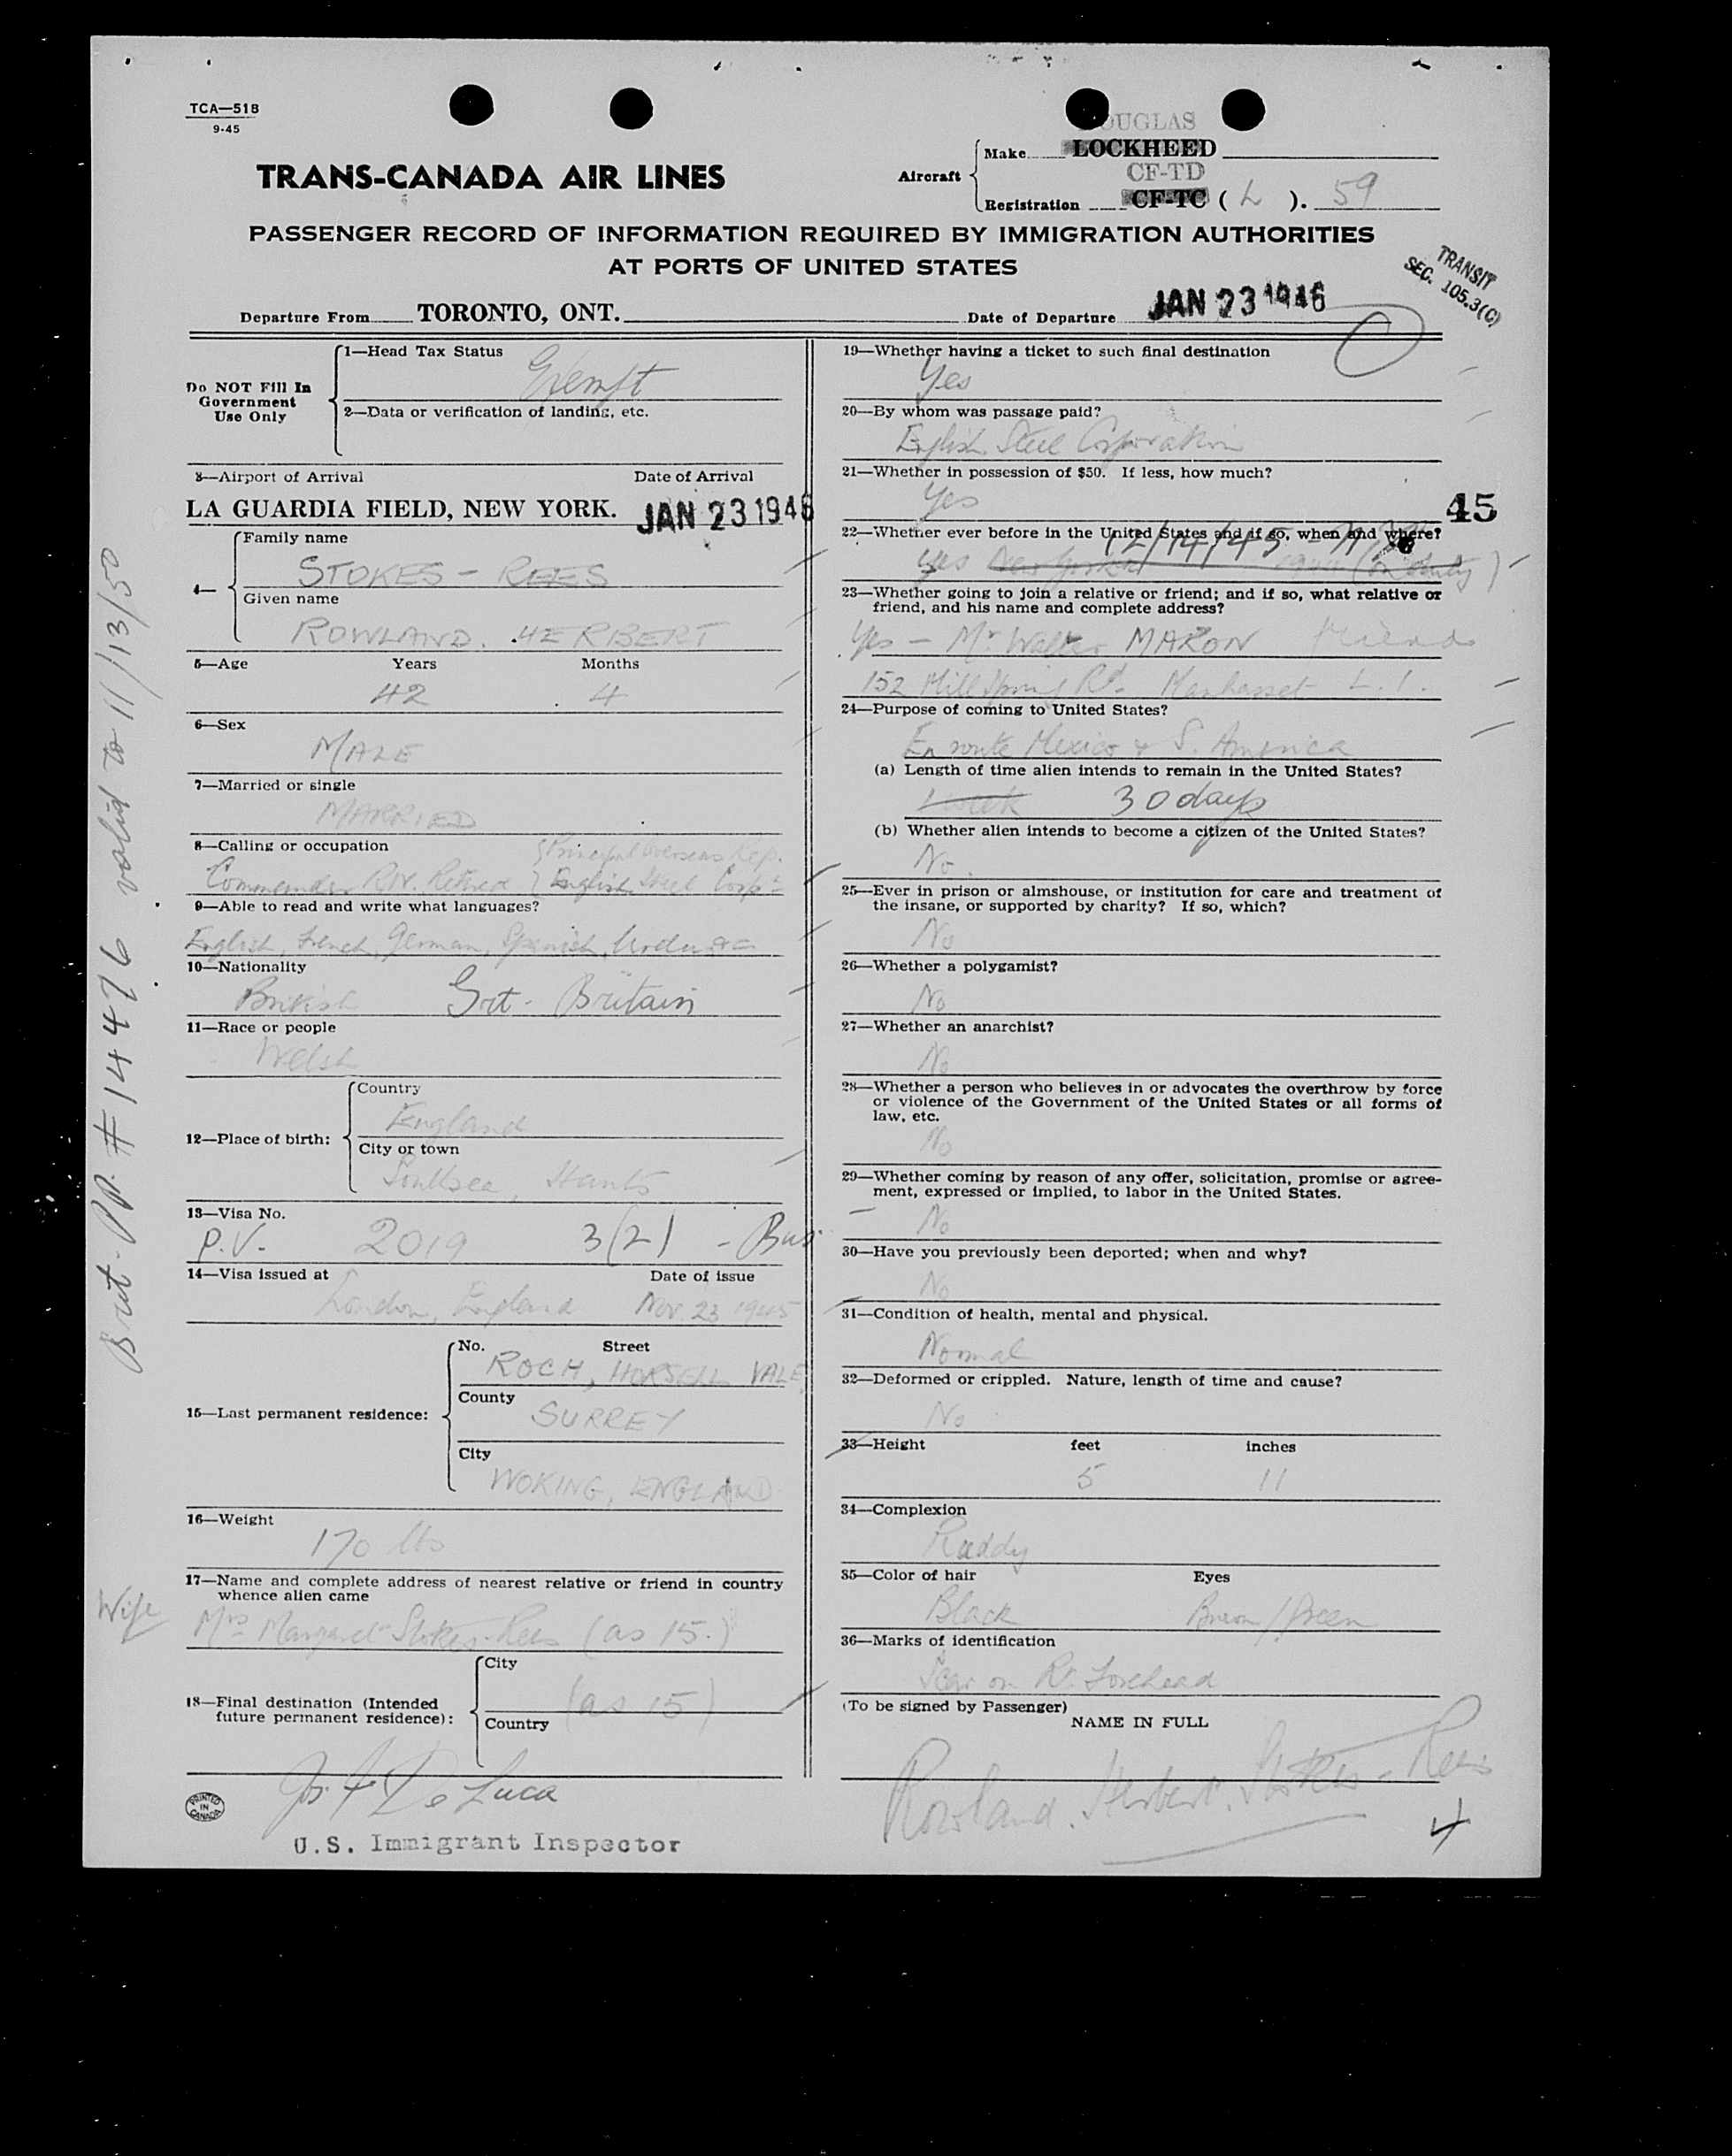 TCA—518
9-45
TRANS-CANADA AIR LINES
Aircraft
DOUGLAS
Make LOCKHEED
CF-TD
Registration CF-TC ( L ). 59
PASSENGER RECORD OF INFORMATION REQUIRED BY IMMIGRATION AUTHORITIES
AT PORTS OF UNITED STATES
TRANSIT
SEC. 105.3(C)
Departure From TORONTO, ONT. Date of Departure JAN 23 1946
Do NOT Fill In
Government
Use Only
1—Head Tax Status
Exempt
2—Data or verification of landing, etc.
3—Airport of Arrival Date of Arrival
LA GUARDIA FIELD, NEW YORK. JAN 23 1946
4—
Family name
STOKES - REES
Given name
ROWLAND. HERBERT
5—Age Years Months
42 4
6—Sex
MALE
7—Married or single
MARRIED
8—Calling or occupation
Principal Overseas Rep.
Commander R.N. Retired English Steel Corpn
9—Able to read and write what languages?
English, French, German, Spanish, Urdu etc
10—Nationality
British Grt. Britain
11—Race or people
Welsh
12—Place of birth:
Country
England
City or town
Southsea, Hants
13—Visa No.
P.V. 2019 3(2) - Bus.
14—Visa issued at Date of issue
London, England Nov. 23 1945
15—Last permanent residence:
No. Street
ROCH, HORSELL VALE,
County
SURREY
City
WOKING, ENGLAND
16—Weight
170 lbs
17—Name and complete address of nearest relative or friend in country
whence alien came
Wife
Mrs Margaret Stokes-Rees (as 15.)
18—Final destination (Intended
future permanent residence):
City
(as 15)
Country
Jos. F. De Luca
PRINTED
IN
CANADA
U.S. Immigrant Inspector
Brit. PP. # 14476 valid to 11/13/50
19—Whether having a ticket to such final destination
Yes
20—By whom was passage paid?
English Steel Corporation
21—Whether in possession of $50. If less, how much?
Yes
45
22—Whether ever before in the United States and if so, when and where?
12/14/45 - N.Y.
Yes New York (on duty)
23—Whether going to join a relative or friend; and if so, what relative or
friend, and his name and complete address?
Yes - Mr Walter MARON Friend
152 Mill Spring Rd. Manhasset L.I.
24—Purpose of coming to United States?
En route Mexico & S. America
(a) Length of time alien intends to remain in the United States?
1 week 30 days
(b) Whether alien intends to become a citizen of the United States?
No.
25—Ever in prison or almshouse, or institution for care and treatment of
the insane, or supported by charity? If so, which?
No
26—Whether a polygamist?
No
27—Whether an anarchist?
No
28—Whether a person who believes in or advocates the overthrow by force
or violence of the Government of the United States or all forms of
law, etc.
No
29—Whether coming by reason of any offer, solicitation, promise or agree-
ment, expressed or implied, to labor in the United States.
No
30—Have you previously been deported; when and why?
No
31—Condition of health, mental and physical.
Normal
32—Deformed or crippled. Nature, length of time and cause?
No
33—Height feet inches
5 11
34—Complexion
Ruddy
35—Color of hair Eyes
Black Brown/Green
36—Marks of identification
Scar on Rt. Forehead
(To be signed by Passenger)
NAME IN FULL
Rowland. Herbert. Stokes-Rees
4